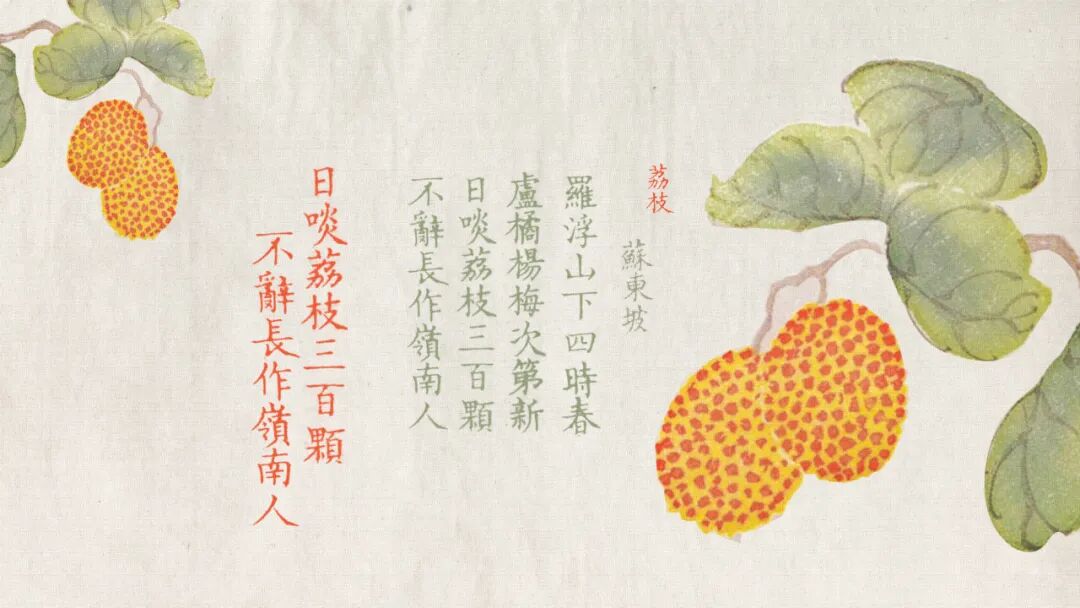 荔枝
蘇東坡
羅浮山下四時春
盧橘楊梅次第新
日啖荔枝三百顆
不辭長作嶺南人
日啖荔枝三百顆
不辭長作嶺南人